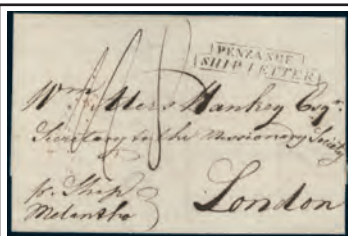 PENZANCE
SHIP LETTER
Wm. Alers Hankey Esqr.
Secretary to the Missionary Society
London
pr. Ship
Melantho